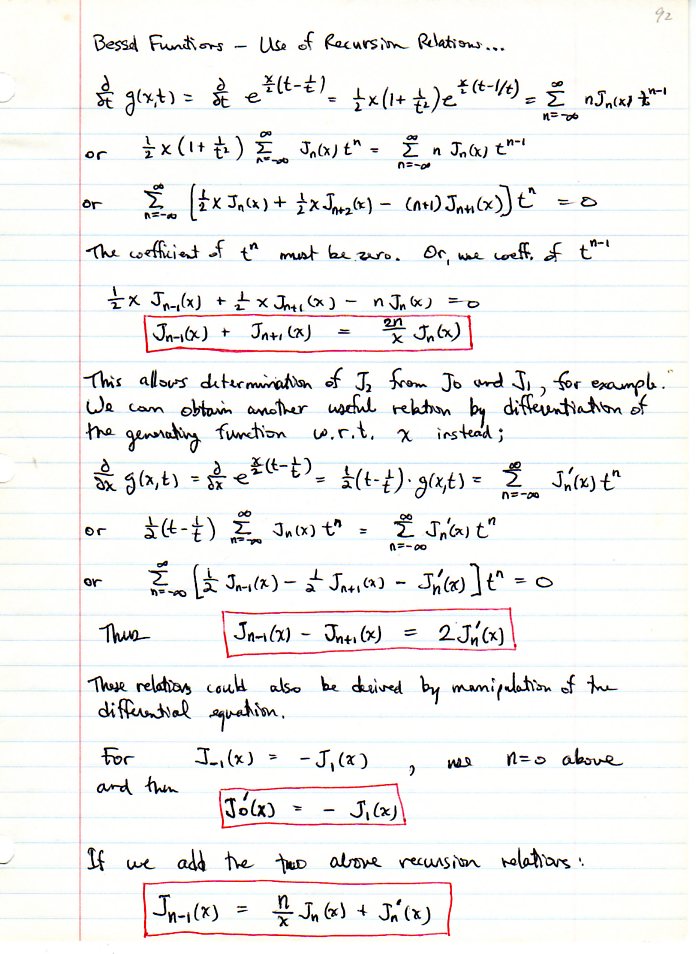 92
Bessel Functions – Use of Recursion Relations...
∂/∂t g(x,t) = ∂/∂t e^{x/2(t-1/t)} = 1/2 x(1+1/t²)e^{x/2(t-1/t)} = Σ_{n=-∞}^{∞} nJn(x) t^{n-1}
or 1/2 x (1+1/t²) Σ_{n=-∞}^{∞} Jn(x) t^n = Σ_{n=-∞}^{∞} n Jn(x) t^{n-1}
or Σ_{n=-∞}^{∞} [1/2 x Jn(x) + 1/2 x J_{n+2}(x) – (n+1) J_{n+1}(x)] t^n = 0
The coefficient of t^n must be zero. Or, use coeff. of t^{n-1}
1/2 x J_{n-1}(x) + 1/2 x J_{n+1}(x) – n Jn(x) = 0
J_{n-1}(x) + J_{n+1}(x) = 2n/x Jn(x)
This allows determination of J2 from J0 and J1, for example.
We can obtain another useful relation by differentiation of
the generating function w.r.t. x instead;
∂/∂x g(x,t) = ∂/∂x e^{x/2(t-1/t)} = 1/2(t-1/t)·g(x,t) = Σ_{n=-∞}^{∞} Jn'(x) t^n
or 1/2(t-1/t) Σ_{n=-∞}^{∞} Jn(x) t^n = Σ_{n=-∞}^{∞} Jn'(x) t^n
or Σ_{n=-∞}^{∞} [1/2 J_{n-1}(x) – 1/2 J_{n+1}(x) – Jn'(x)] t^n = 0
Thus J_{n-1}(x) – J_{n+1}(x) = 2Jn'(x)
These relations could also be derived by manipulation of the
differential equation.
For J_{-1}(x) = -J1(x) , use n=0 above
and then
J0'(x) = – J1(x)
If we add the two above recursion relations:
J_{n-1}(x) = n/x Jn(x) + Jn'(x)